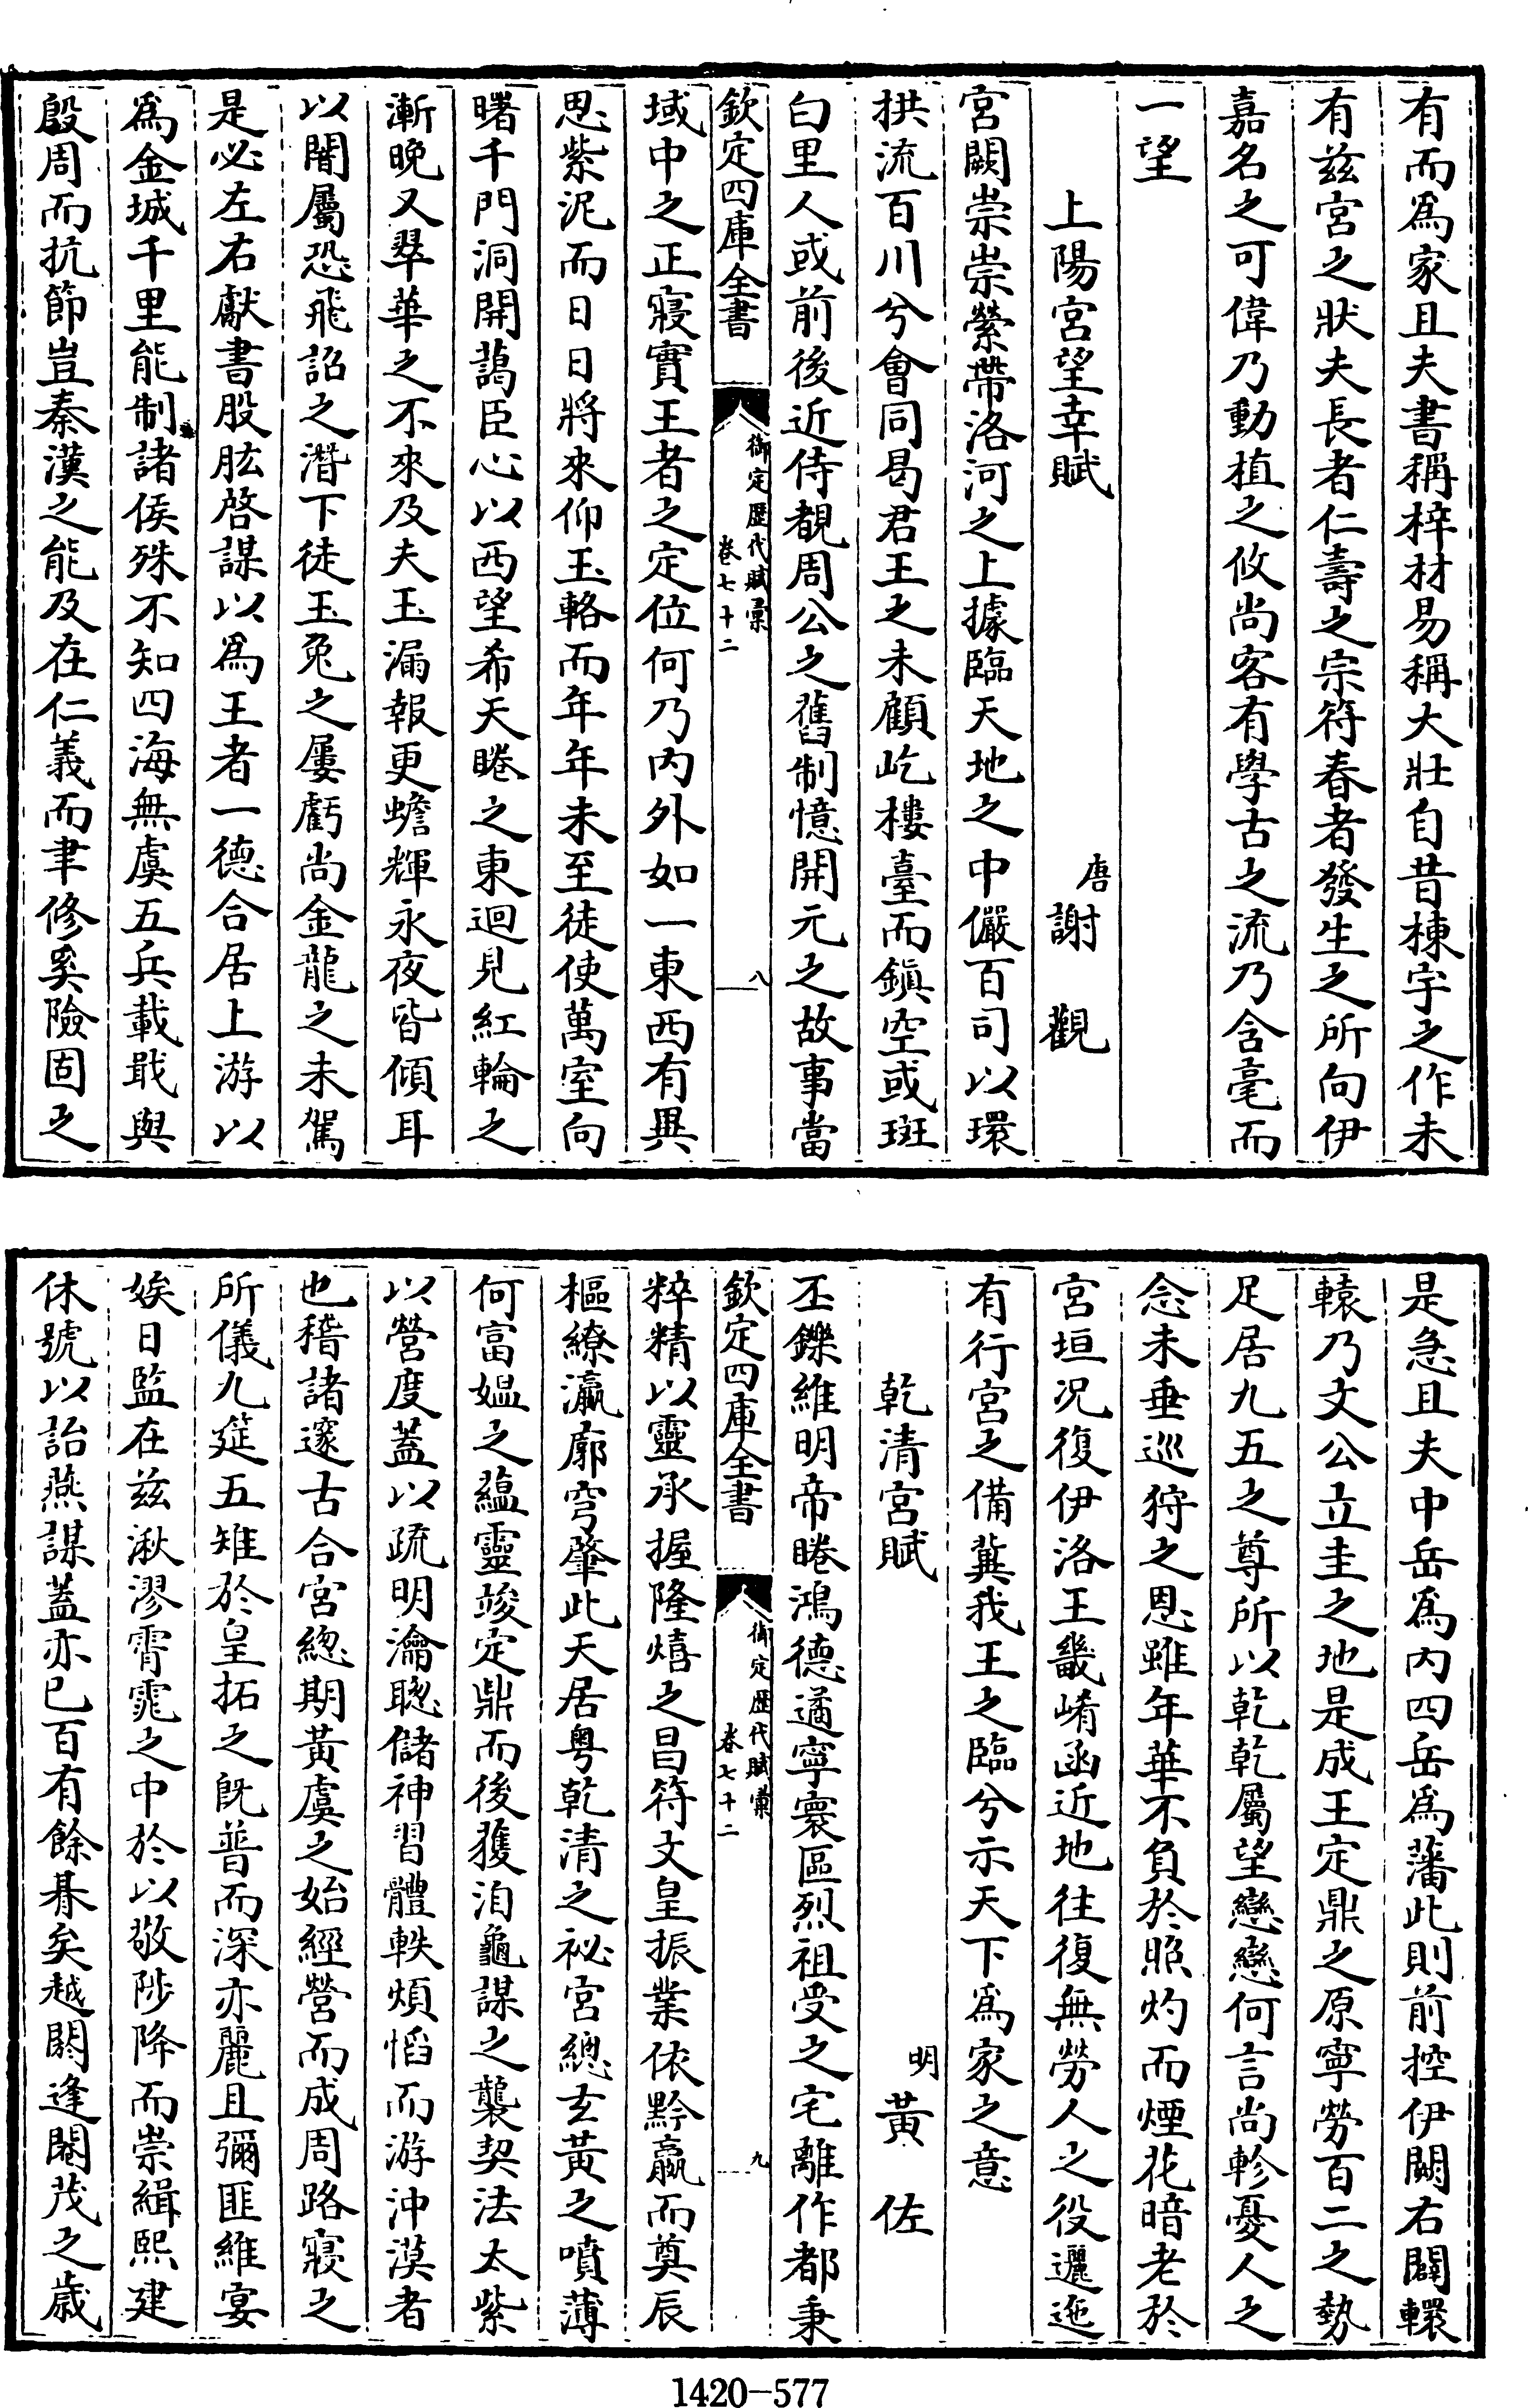 有而爲家且夫書稱梓材易稱大壯自昔棟宇之作未
有兹宮之狀夫長者仁壽之宗符春者發生之所向伊
嘉名之可偉乃動植之攸尚客有學古之流乃含毫而
一望
上陽宮望幸賦
唐謝觀
宮闕崇崇縈帶洛河之上據臨天地之中儼百司以環
拱流百川兮會同曷君王之未顧屹樓臺而鎮空或斑
白里人或前後近侍覩周公之舊制憶開元之故事當
欽定四庫全書
御定歴代賦彙
卷七十二
八
域中之正寢實王者之定位何乃内外如一東西有異
思紫泥而日日將來仰玉輅而年年未至徒使萬室向
曙千門洞開藹臣心以西望希天睠之東迴見紅輪之
漸晚又翠華之不來及夫玉漏報更蟾輝永夜皆傾耳
以闇屬恐飛詔之潛下徒玉兔之屢虧尚金龍之未駕
是必左右獻書股肱啓謀以爲王者一德合居上游以
爲金城千里能制諸侯殊不知四海無虞五兵載戢與
殷周而抗節豈秦漢之能及在仁義而聿修奚險固之
是急且夫中岳爲内四岳爲藩此則前控伊闕右闢轘
轅乃文公立圭之地是成王定鼎之原寧勞百二之勢
足居九五之尊所以乾乾屬望戀戀何言尚軫憂人之
念未垂巡狩之恩雖年華不負於照灼而煙花暗老於
宮垣况復伊洛王畿崤函近地往復無勞人之役邐迤
有行宮之備冀我王之臨兮示天下爲家之意
乾清宮賦
明黃佐
丕鑠維明帝睠鴻德遹寧寰區烈祖受之宅離作都秉
欽定四庫全書
御定歴代賦彙
卷七十二
九
粹精以靈承握隆熺之昌符文皇振業依黔羸而奠辰
樞繚瀛廓穹肇此天居粤乾清之祕宮總玄黃之噴薄
何富媼之藴靈竢定鼎而後獲洎龜謀之襲契法太紫
以營度蓋以疏明瀹聰儲神習體軼煩慆而游沖漠者
也稽諸邃古合宮總期黃虞之始經營而成周路寢之
所儀九筵五雉於皇拓之既普而深亦麗且彌匪維宴
娭日監在兹湫漻霄霓之中於以敬陟降而崇緝熙建
休號以詒燕謀蓋亦已百有餘朞矣越閼逢閹茂之歲
1420-577